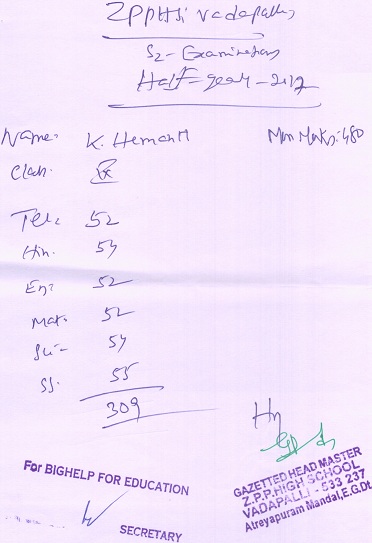 ZPPHSi Vadapalli
S2- Examinations
Half-year-2017
Name: K. Hemanth Max Marks: 480
Class:
Tel: 52
Hin. 54
En: 52
Mat. 52
Sci- 54
SS. 55
309
For BIGHELP FOR EDUCATION
SECRETARY
GAZETTED HEAD MASTER
Z.P.P.HIGH SCHOOL
VADAPALLI - 533 237
Atreyapuram Mandal,E.G.Dt